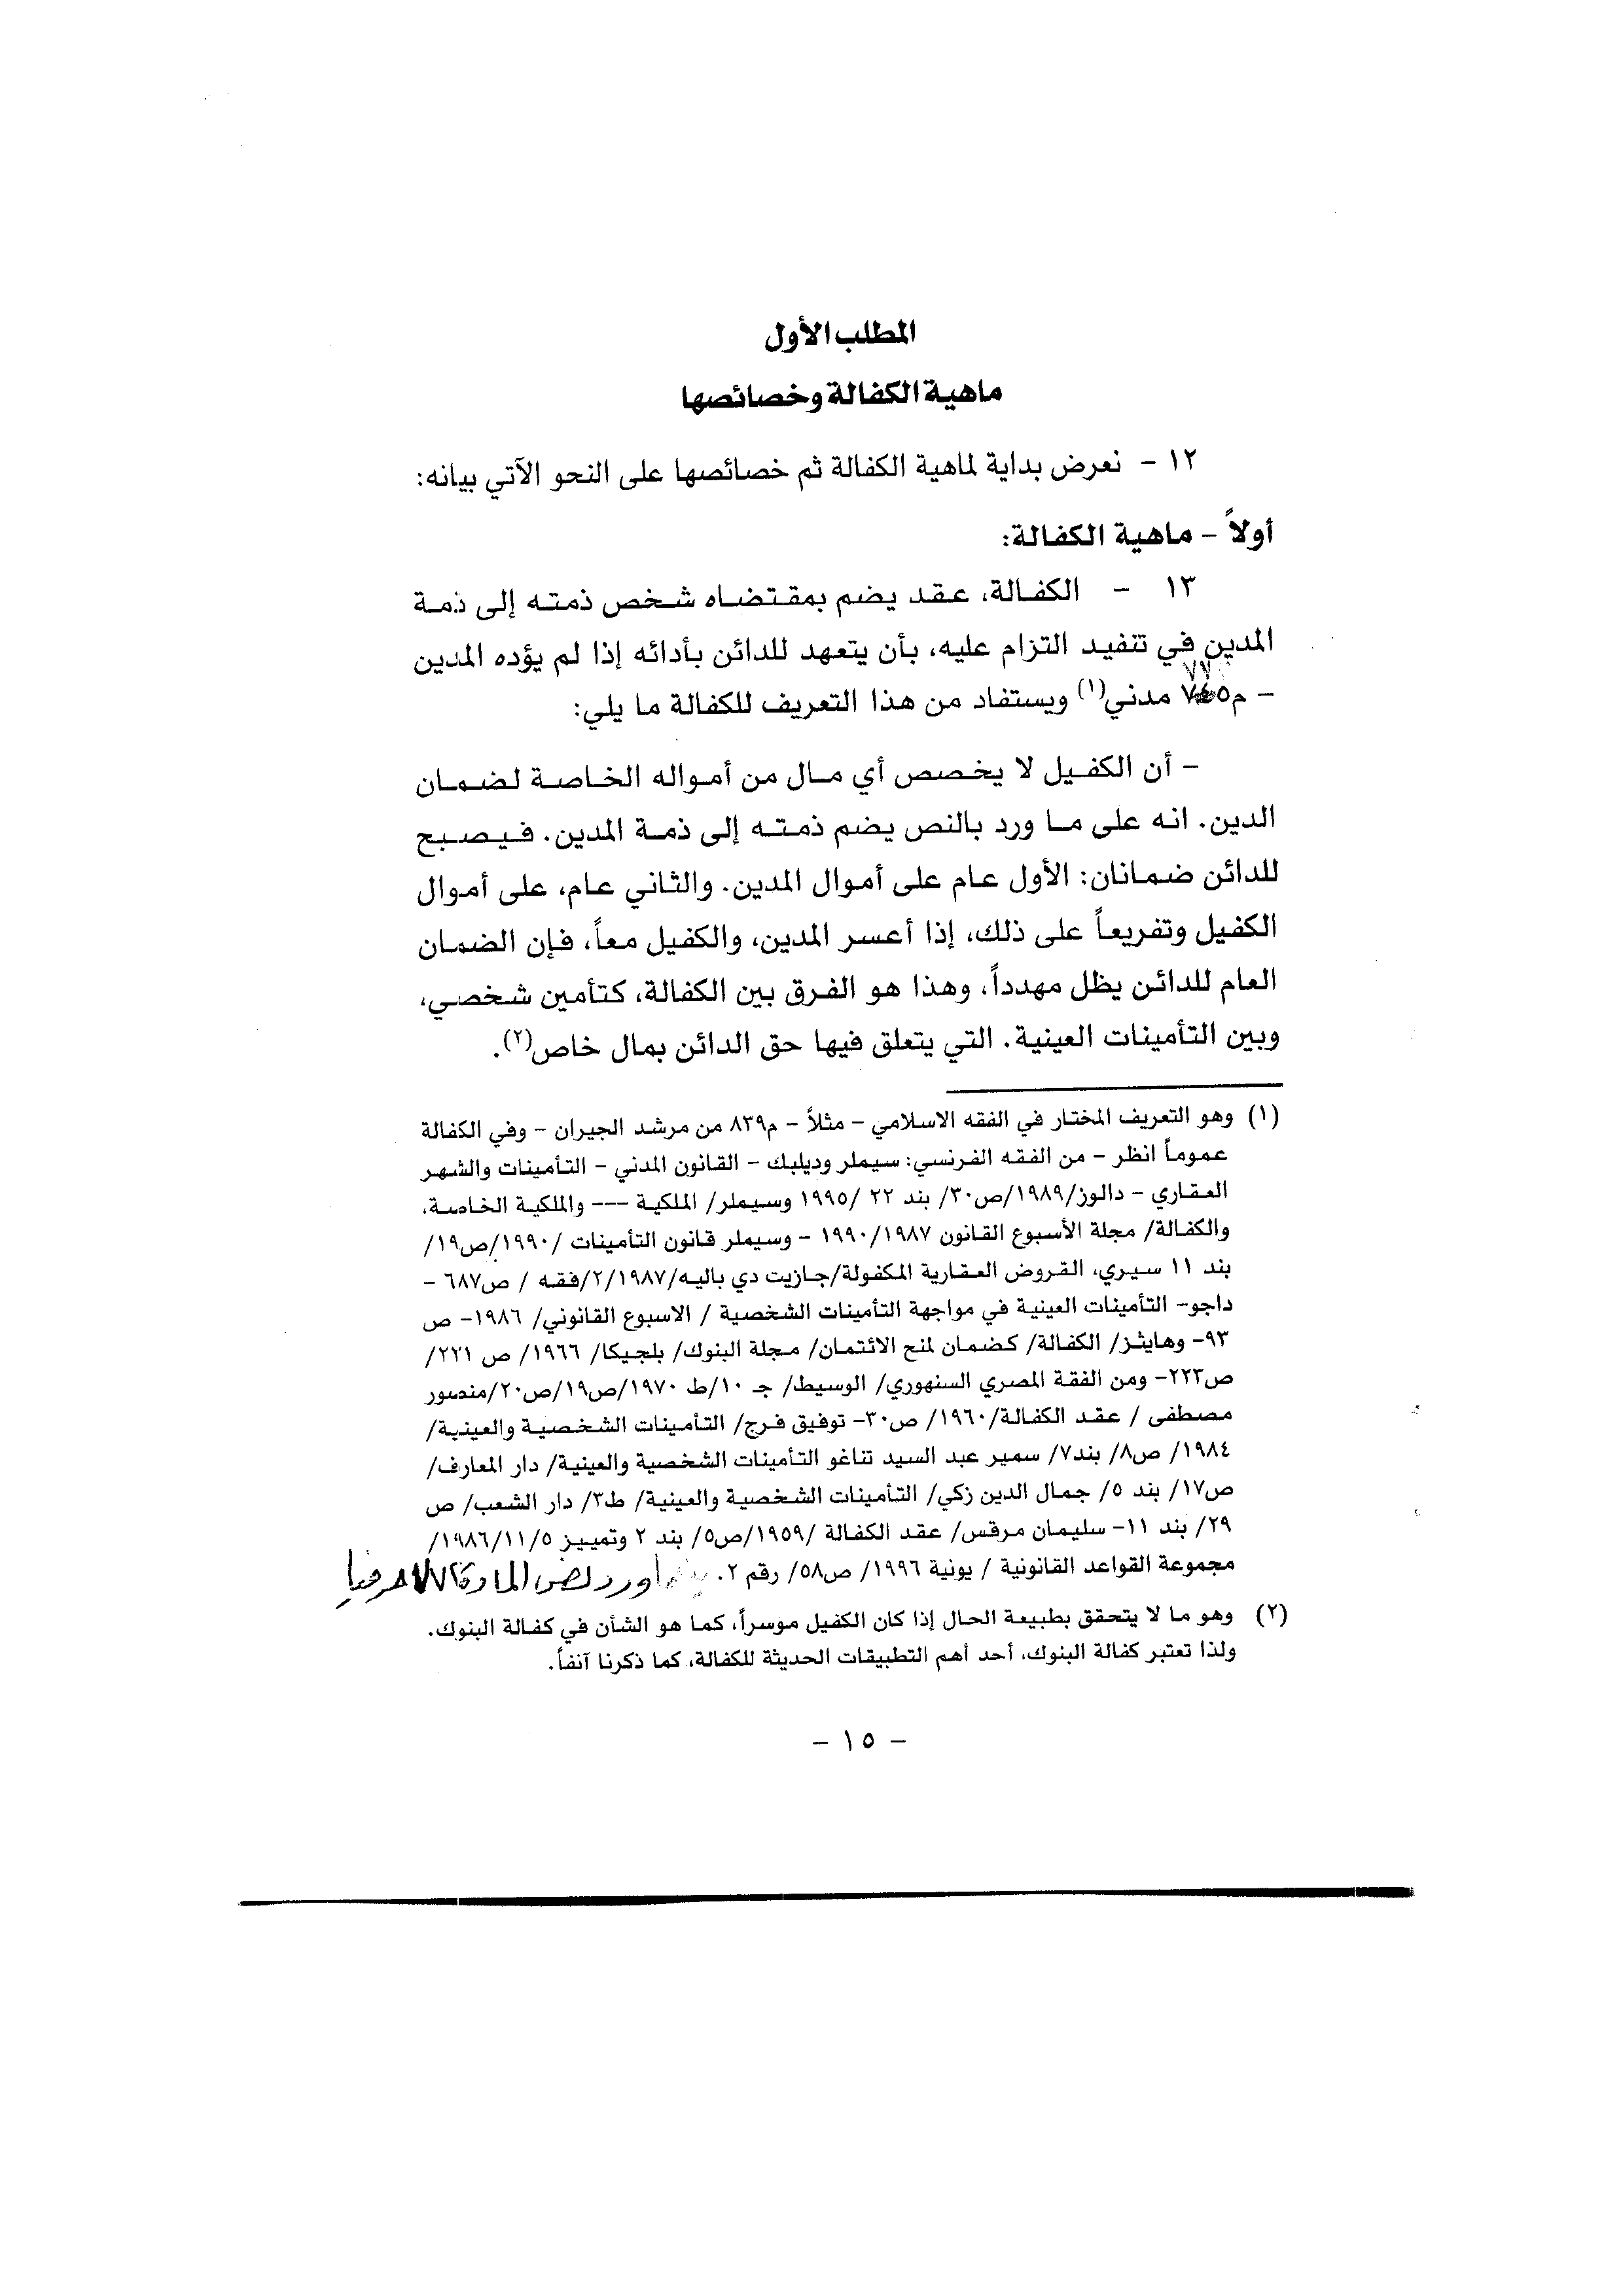 المطلب الأول
ماهية الكفالة وخصائصها
١٢ - نعرض بداية لماهية الكفالة ثم خصائصها على النحو الآتي بيانه:
أولاً - ماهية الكفالة:
١٣ - الكفالة، عقد يضم بمقتضاه شخص ذمته إلى ذمة
المدين في تنفيد التزام عليه، بأن يتعهد للدائن بأدائه إذا لم يؤده المدين
- م٧٤٥ مدني(١) ويستفاد من هذا التعريف للكفالة ما يلي:
- أن الكفيل لا يخصص أي مال من أمواله الخاصة لضمان
الدين. انه على ما ورد بالنص يضم ذمته إلى ذمة المدين. فيصبح
للدائن ضمانان: الأول عام على أموال المدين. والثاني عام، على أموال
الكفيل وتفريعاً على ذلك، إذا أعسر المدين، والكفيل معاً، فإن الضمان
العام للدائن يظل مهدداً، وهذا هو الفرق بين الكفالة، كتأمين شخصي،
وبين التأمينات العينية. التي يتعلق فيها حق الدائن بمال خاص(٢).
(١) وهو التعريف المختار في الفقه الاسلامي - مثلاً - م٨٣٩ من مرشد الجيران - وفي الكفالة
عموماً انظر - من الفقه الفرنسي: سيملر وديلبك - القانون المدني - التأمينات والشهر
العقاري - دالوز/١٩٨٩/ص٣٠/ بند ٢٢ /١٩٩٥ وسيملر/ الملكية --- والملكية الخاصة،
والكفالة/ مجلة الأسبوع القانون ١٩٩٠/١٩٨٧ - وسيملر قانون التأمينات /١٩٩٠/ص١٩/
بند ١١ سيري، القروض العقارية المكفولة/جازيت دي باليه/٢/١٩٨٧/فقه / ص٦٨٧ -
داجو- التأمينات العينية في مواجهة التأمينات الشخصية / الاسبوع القانوني/ ١٩٨٦- ص
٩٣- وهايثز/ الكفالة/ كضمان لمنح الائتمان/ مجلة البنوك/ بلجيكا/ ١٩٦٦/ ص ٢٢١/
ص٢٢٣- ومن الفقة المصري السنهوري/ الوسيط/ جـ ١٠/ط ١٩٧٠/ص١٩/ص٢٠/منصور
مصطفى / عقد الكفالة/١٩٦٠/ ص٣٠- توفيق فرج/ التأمينات الشخصية والعينية/
١٩٨٤/ ص٨/ بند٧/ سمير عبد السيد تناغو التأمينات الشخصية والعينية/ دار المعارف/
ص١٧/ بند ٥/ جمال الدين زكي/ التأمينات الشخصية والعينية/ ط٣/ دار الشعب/ ص
٢٩/ بند ١١- سليمان مرقس/ عقد الكفالة /١٩٥٩/ص٥/ بند ٢ وتمييز ١٩٨٦/١١/٥/
مجموعة القواعد القانونية / يونية ١٩٩٦/ ص٥٨/ رقم ٢.
(٢) وهو ما لا يتحقق بطبيعة الحال إذا كان الكفيل موسراً، كما هو الشأن في كفالة البنوك.
ولذا تعتبر كفالة البنوك، أحد أهم التطبيقات الحديثة للكفالة، كما ذكرنا آنفاً.
- ١٥ -